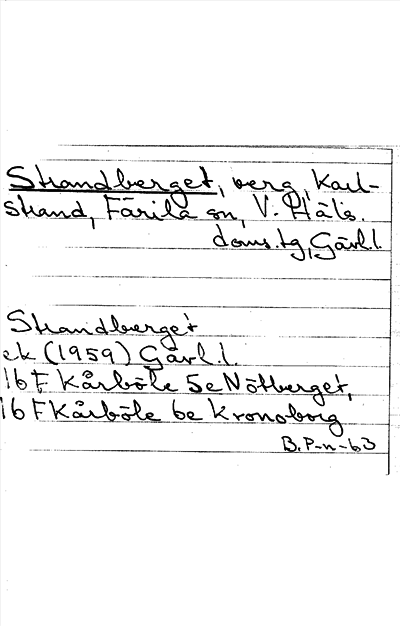 Strandberget, berg, Karl-
strand, Färila sn, V. Häls.
doms.tg, Gävl.l.
Strandberget
ek (1959) Gävl.l.
16 F Kårböle 5e Nötberget,
16 F Kårböle 6e Kronoborg
B.P-n-63